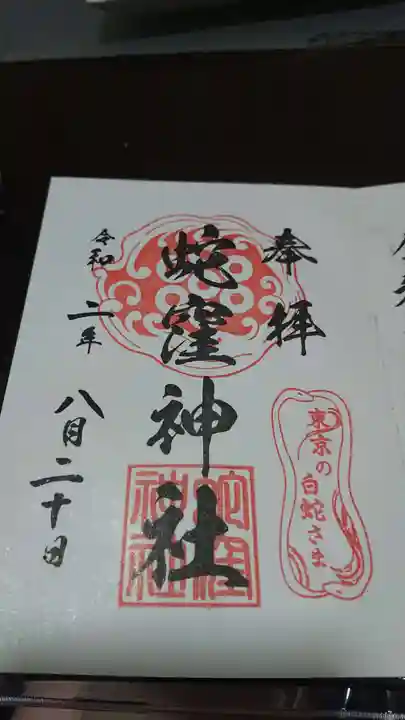 奉拝
蛇窪神社
令和二年
八月二十日
東京の
白蛇さま
蛇窪
神社